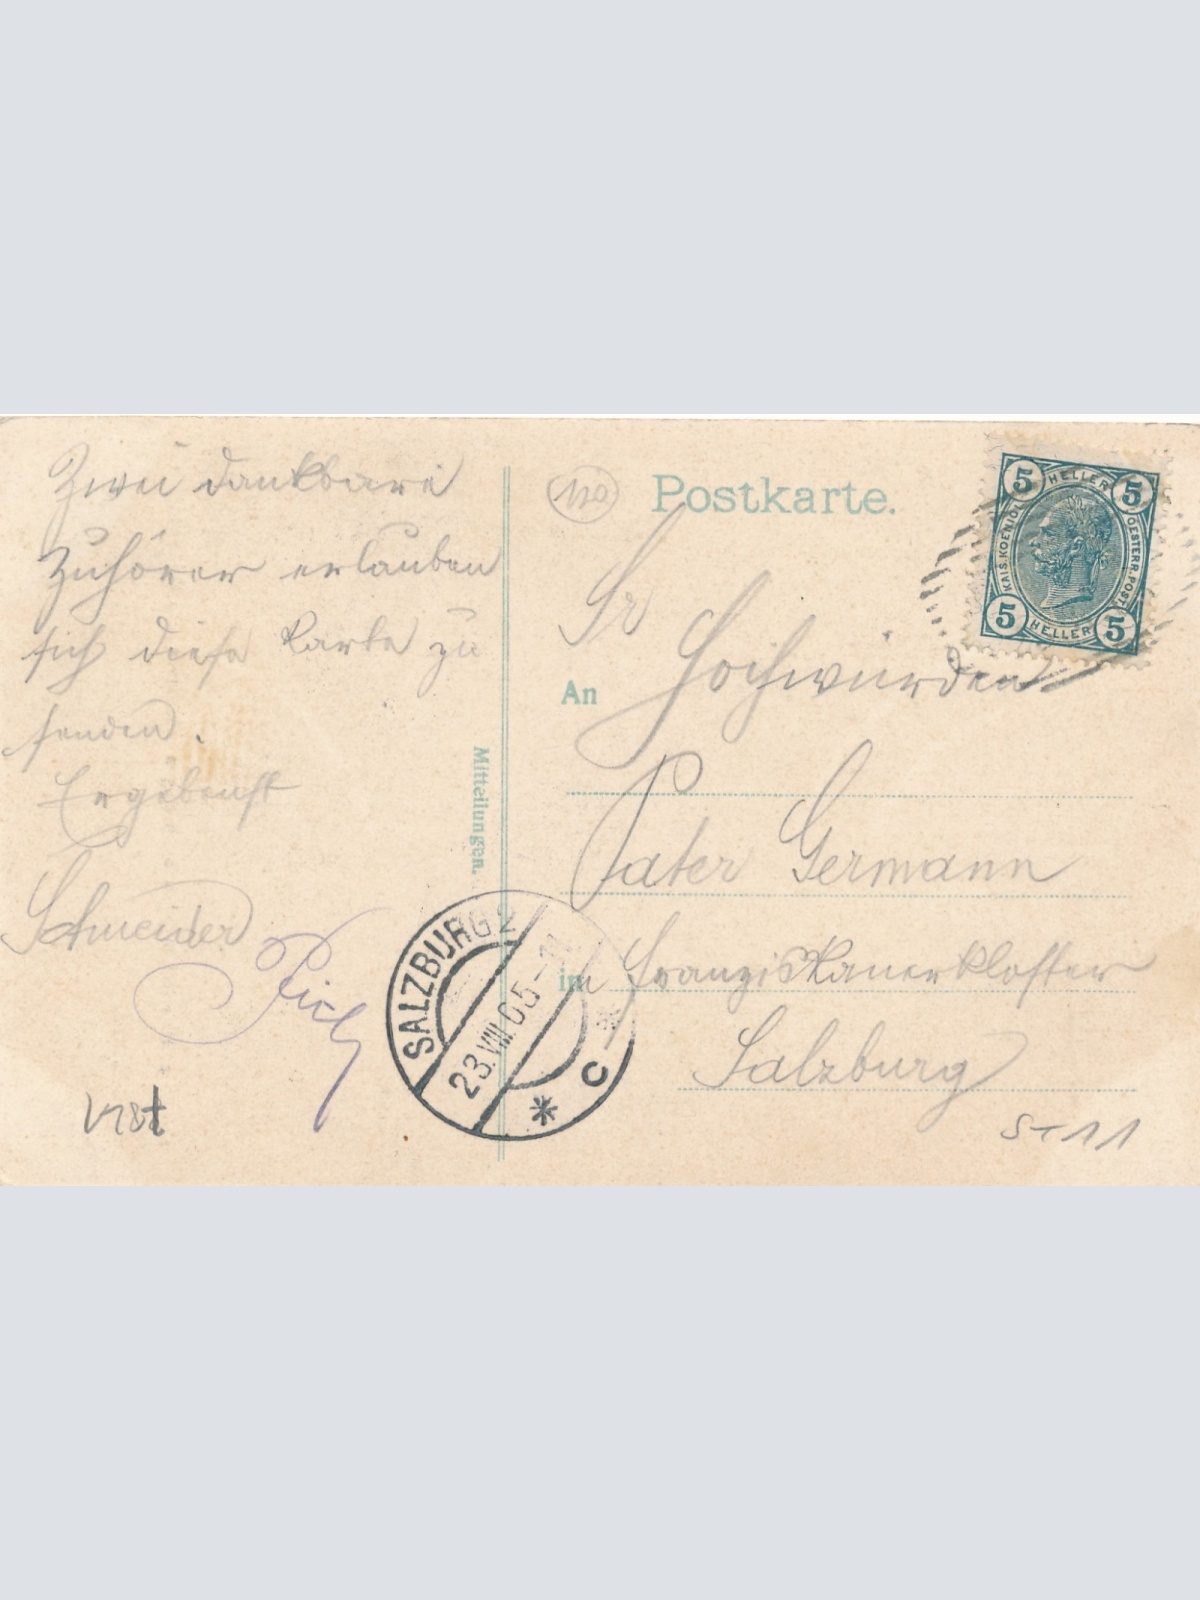 Zwei dankbare
Zuhörer erlauben
sich diese Karte zu
senden.
Ergebenst
Schneider
Mitteilungen.
110
Postkarte.
Sr
Hochwürden
An
Pater Germann
im Franziskanerkloster
Salzburg
5 HELLER 5
KAIS. KOENIGL.
OESTERR. POST.
5 HELLER 5
SALZBURG 2
23.VIII.05-11
* C *
ST 11